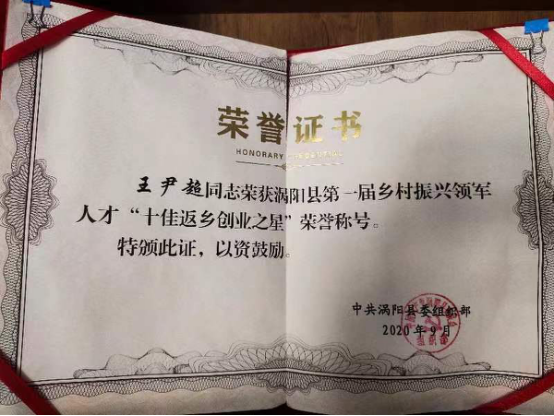 荣誉证书
HONORARY
王尹超同志荣获涡阳县第一届乡村振兴领军
人才“十佳返乡创业之星”荣誉称号。
特颁此证，以资鼓励。
中共涡阳县委组织部
2020年9月